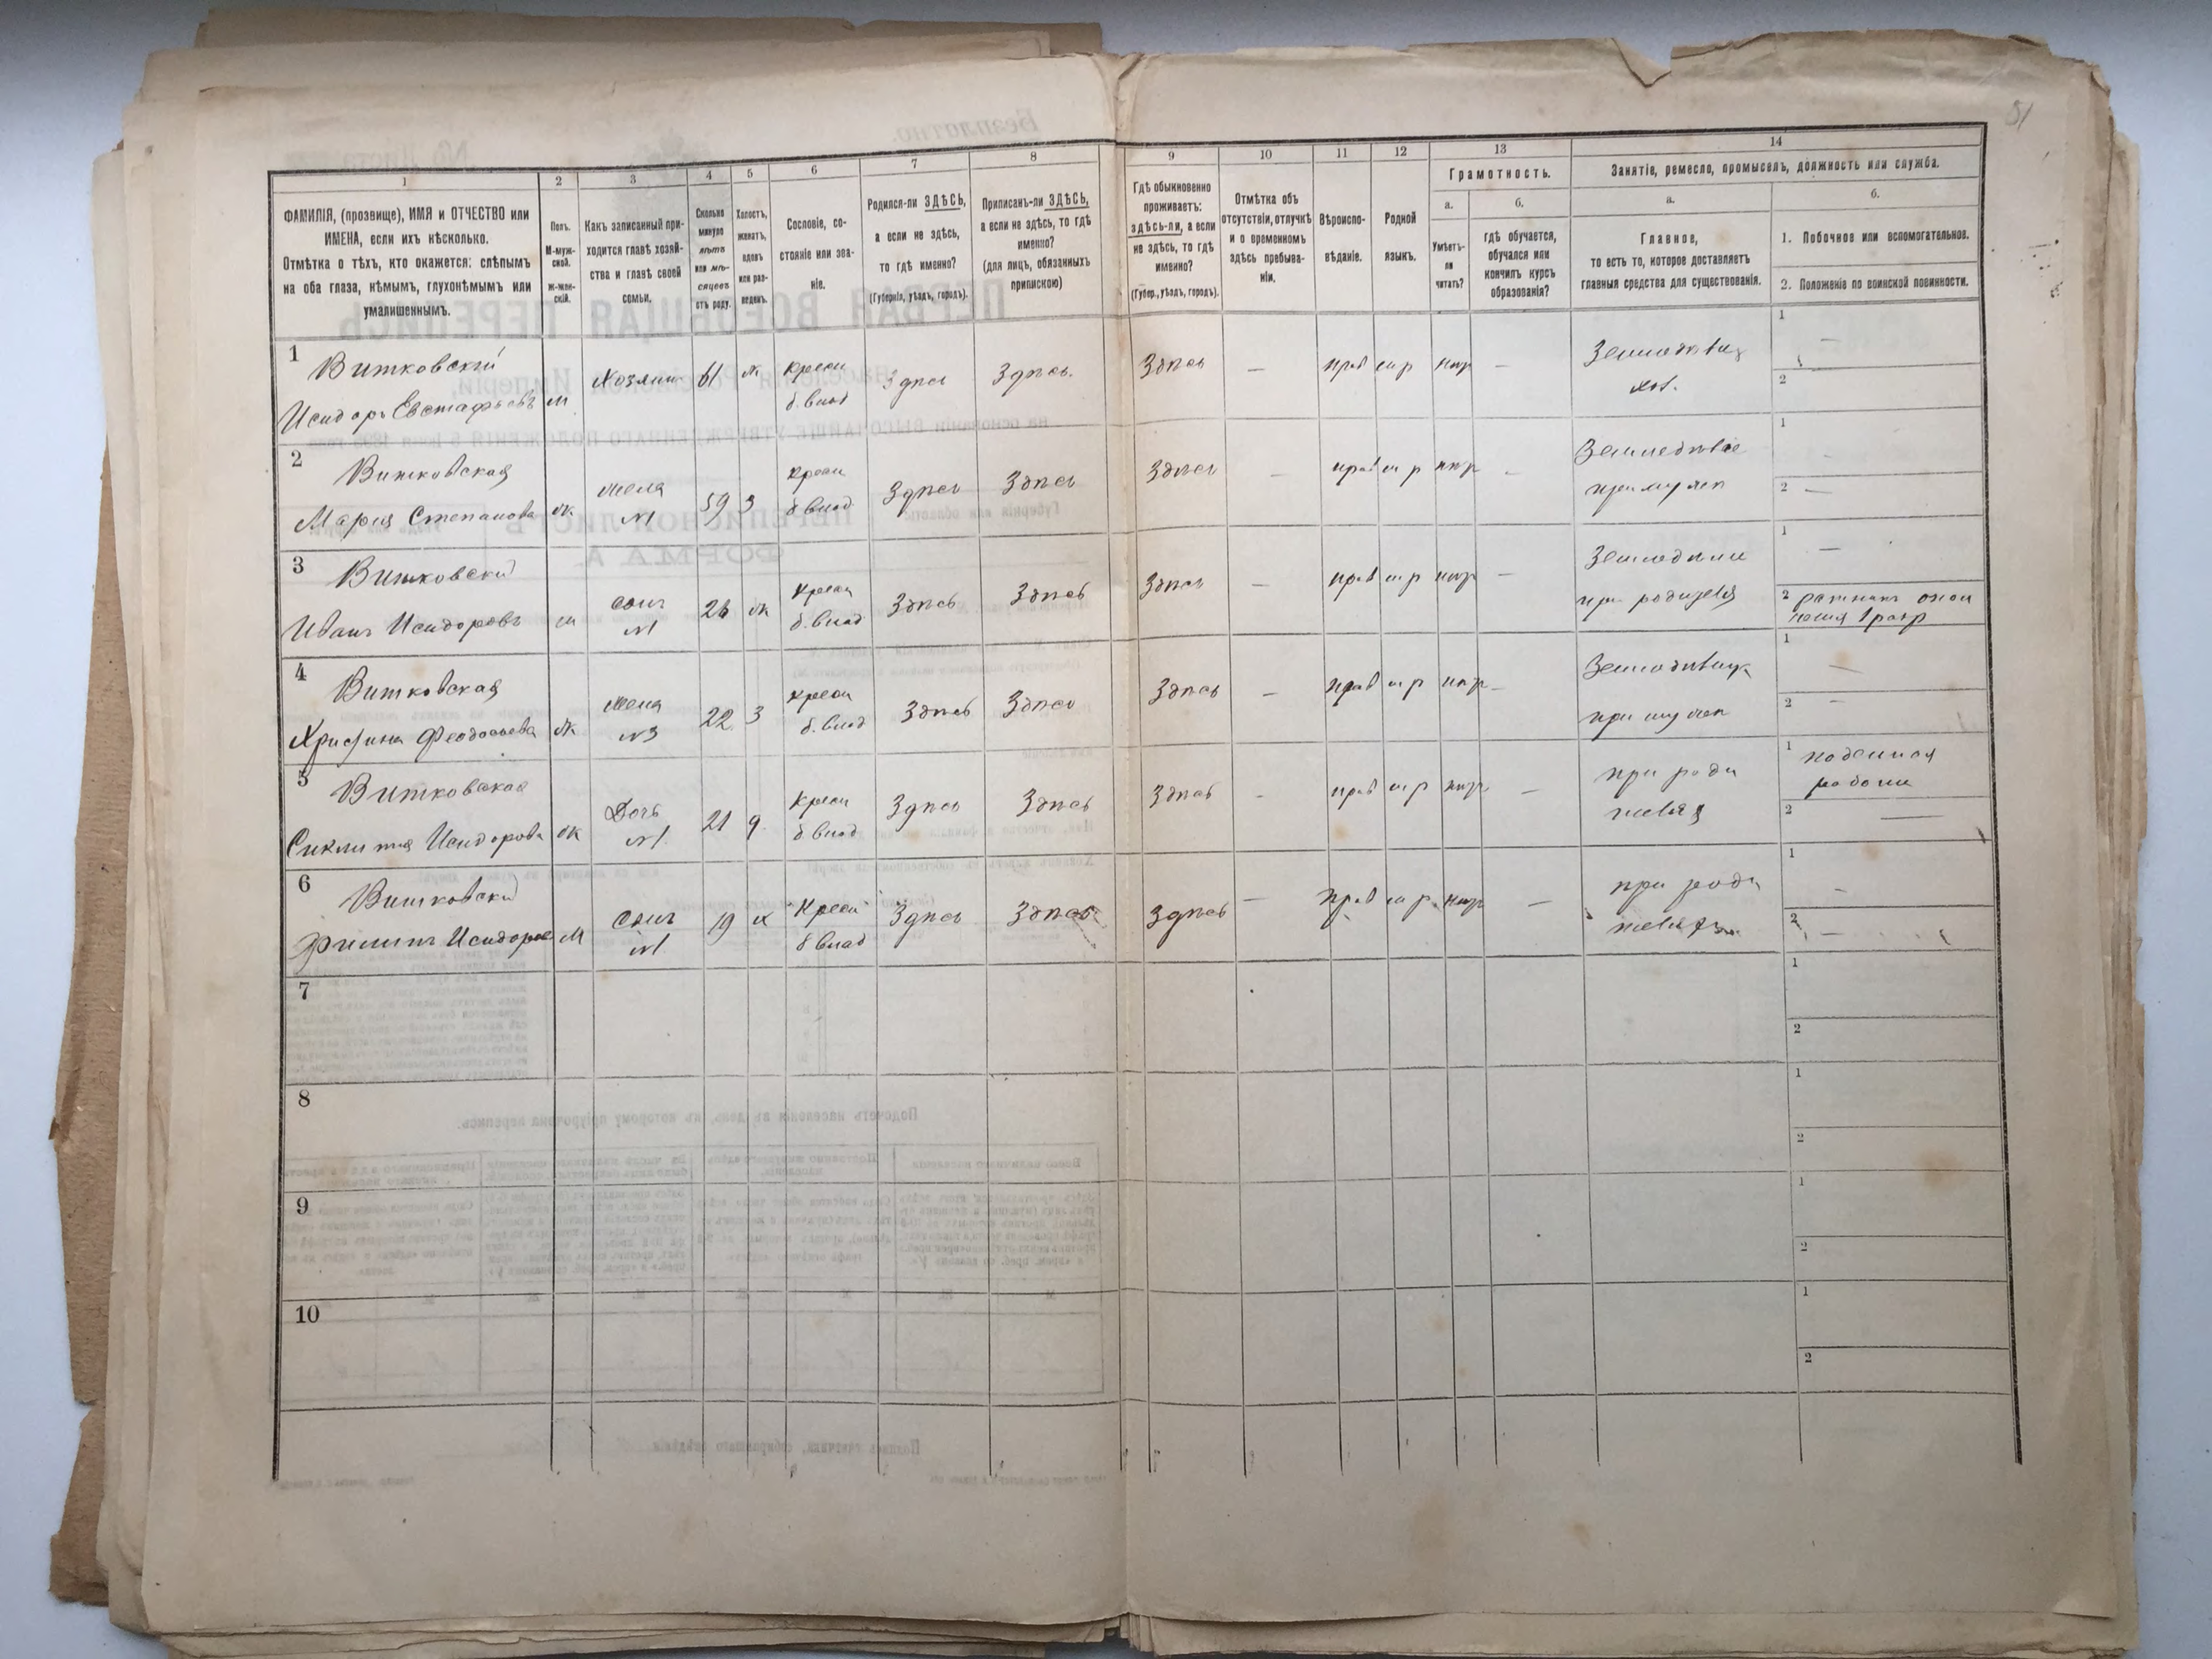 51
1
2
3
4
5
6
7
8
9
10
11
12
13
14
ФАМИЛІЯ, (прозвище), ИМЯ и ОТЧЕСТВО или
ИМЕНА, если ихъ нѣсколько.
Отмѣтка о тѣхъ, кто окажется: слѣпымъ
на оба глаза, нѣмымъ, глухонѣмымъ или
умалишеннымъ.
Полъ.
М-муж-
ской.
Ж-жен-
скій.
Какъ записанный при-
ходится главѣ хозяй-
ства и главѣ своей
семьи.
Сколько
минуло
лѣтъ
или мѣ-
сяцевъ
отъ роду.
Холостъ,
женатъ,
вдовъ
или раз-
веденъ.
Сословіе, со-
стояніе или зва-
ніе.
Родился-ли ЗДѢСЬ,
а если не здѣсь,
то гдѣ именно?
(Губернія, уѣздъ, городъ).
Приписанъ-ли ЗДѢСЬ,
а если не здѣсь, то гдѣ
именно?
(для лицъ, обязанныхъ
припискою)
Гдѣ обыкновенно
проживаетъ:
здѣсь-ли, а если
не здѣсь, то гдѣ
именно?
(Губер., уѣздъ, городъ).
Отмѣтка объ
отсутствіи, отлучкѣ
и о временномъ
здѣсь пребыва-
ніи.
Вѣроиспо-
вѣданіе.
Родной
языкъ.
Грамотность.
а.
Умѣетъ-
ли
читать?
б.
гдѣ обучается,
обучался или
кончилъ курсъ
образованія?
Занятіе, ремесло, промыселъ, должность или служба.
а.
Главное,
то есть то, которое доставляетъ
главныя средства для существованія.
б.
1. Побочное или вспомогательное.
2. Положеніе по воинской повинности.
1 Витковскій
Исидоръ Евстафьевъ м Хозяинъ 61 ж крест б.влад Здѣсь Здѣсь. Здѣсь — прав мр нѣт — 1 —
2
2 Витковская
Мария Степанова ж жена №1 59 з крест б влад Здѣсь Здѣсь Здѣсь — прав мр Земледѣліе при муже 1
2 —
3 Витковскій
Иванъ Исидоровъ м сынъ №1 26 ж крест б.влад Здѣсь Здѣсь Здѣсь — прав мр — 1 —
2 ратникъ опол
ченія 1 разр
4 Витковская
Христина Феодосьева ж жена №3 22 з крест б.влад Здѣсь Здѣсь Здѣсь — прав мр — при муже 1 —
2 —
5 Витковская
Сиклития Исидорова ж Дочь №1 21 д крест б влад Здѣсь Здѣсь Здѣсь — прав мр — при роди
телях 1 поденная
работа
2 —
6 Витковскій
Филипъ Исидоров м Сынъ №1 19 х Крест б влад Здѣсь Здѣсь Здѣсь — прав мр — при роди
телях 1 —
2 —
7 1
2
8 1
2
9 1
2
10 1
2